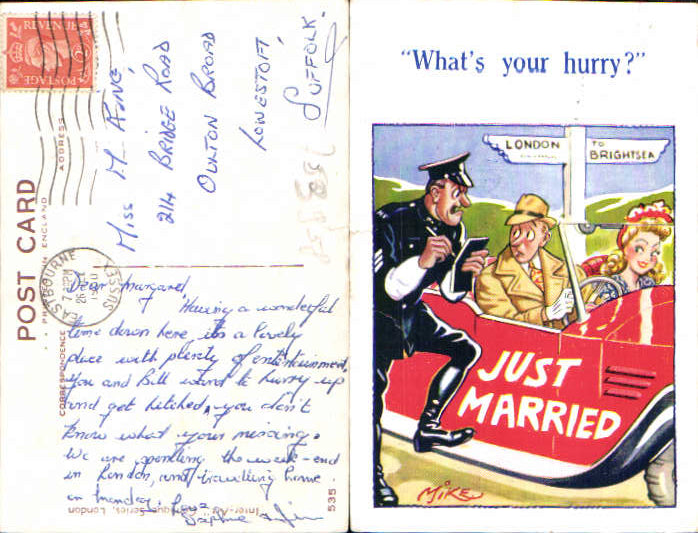 POSTAGE
REVENUE
ADDRESS
POST CARD
ENGLAND
CORRESPONDENCE
Miss M
214 BRIDGE ROAD
OULTON BROAD
LOWESTOFT
SUFFOLK.
EASTBOURNE
SUSSEX
Dear Margaret
Having a wonderful
time down here, its a lovely
place with plenty of entertainment,
You and Bill want to hurry up
and get hitched, you don't
know what your missing.
We are spending the week-end
in London, and travelling home
on Monday, Love
Daphne
"Inter-Art" Comique Series, London
535
"What's your hurry?"
LONDON
TO
BRIGHTSEA
JUST
MARRIED
MIKE